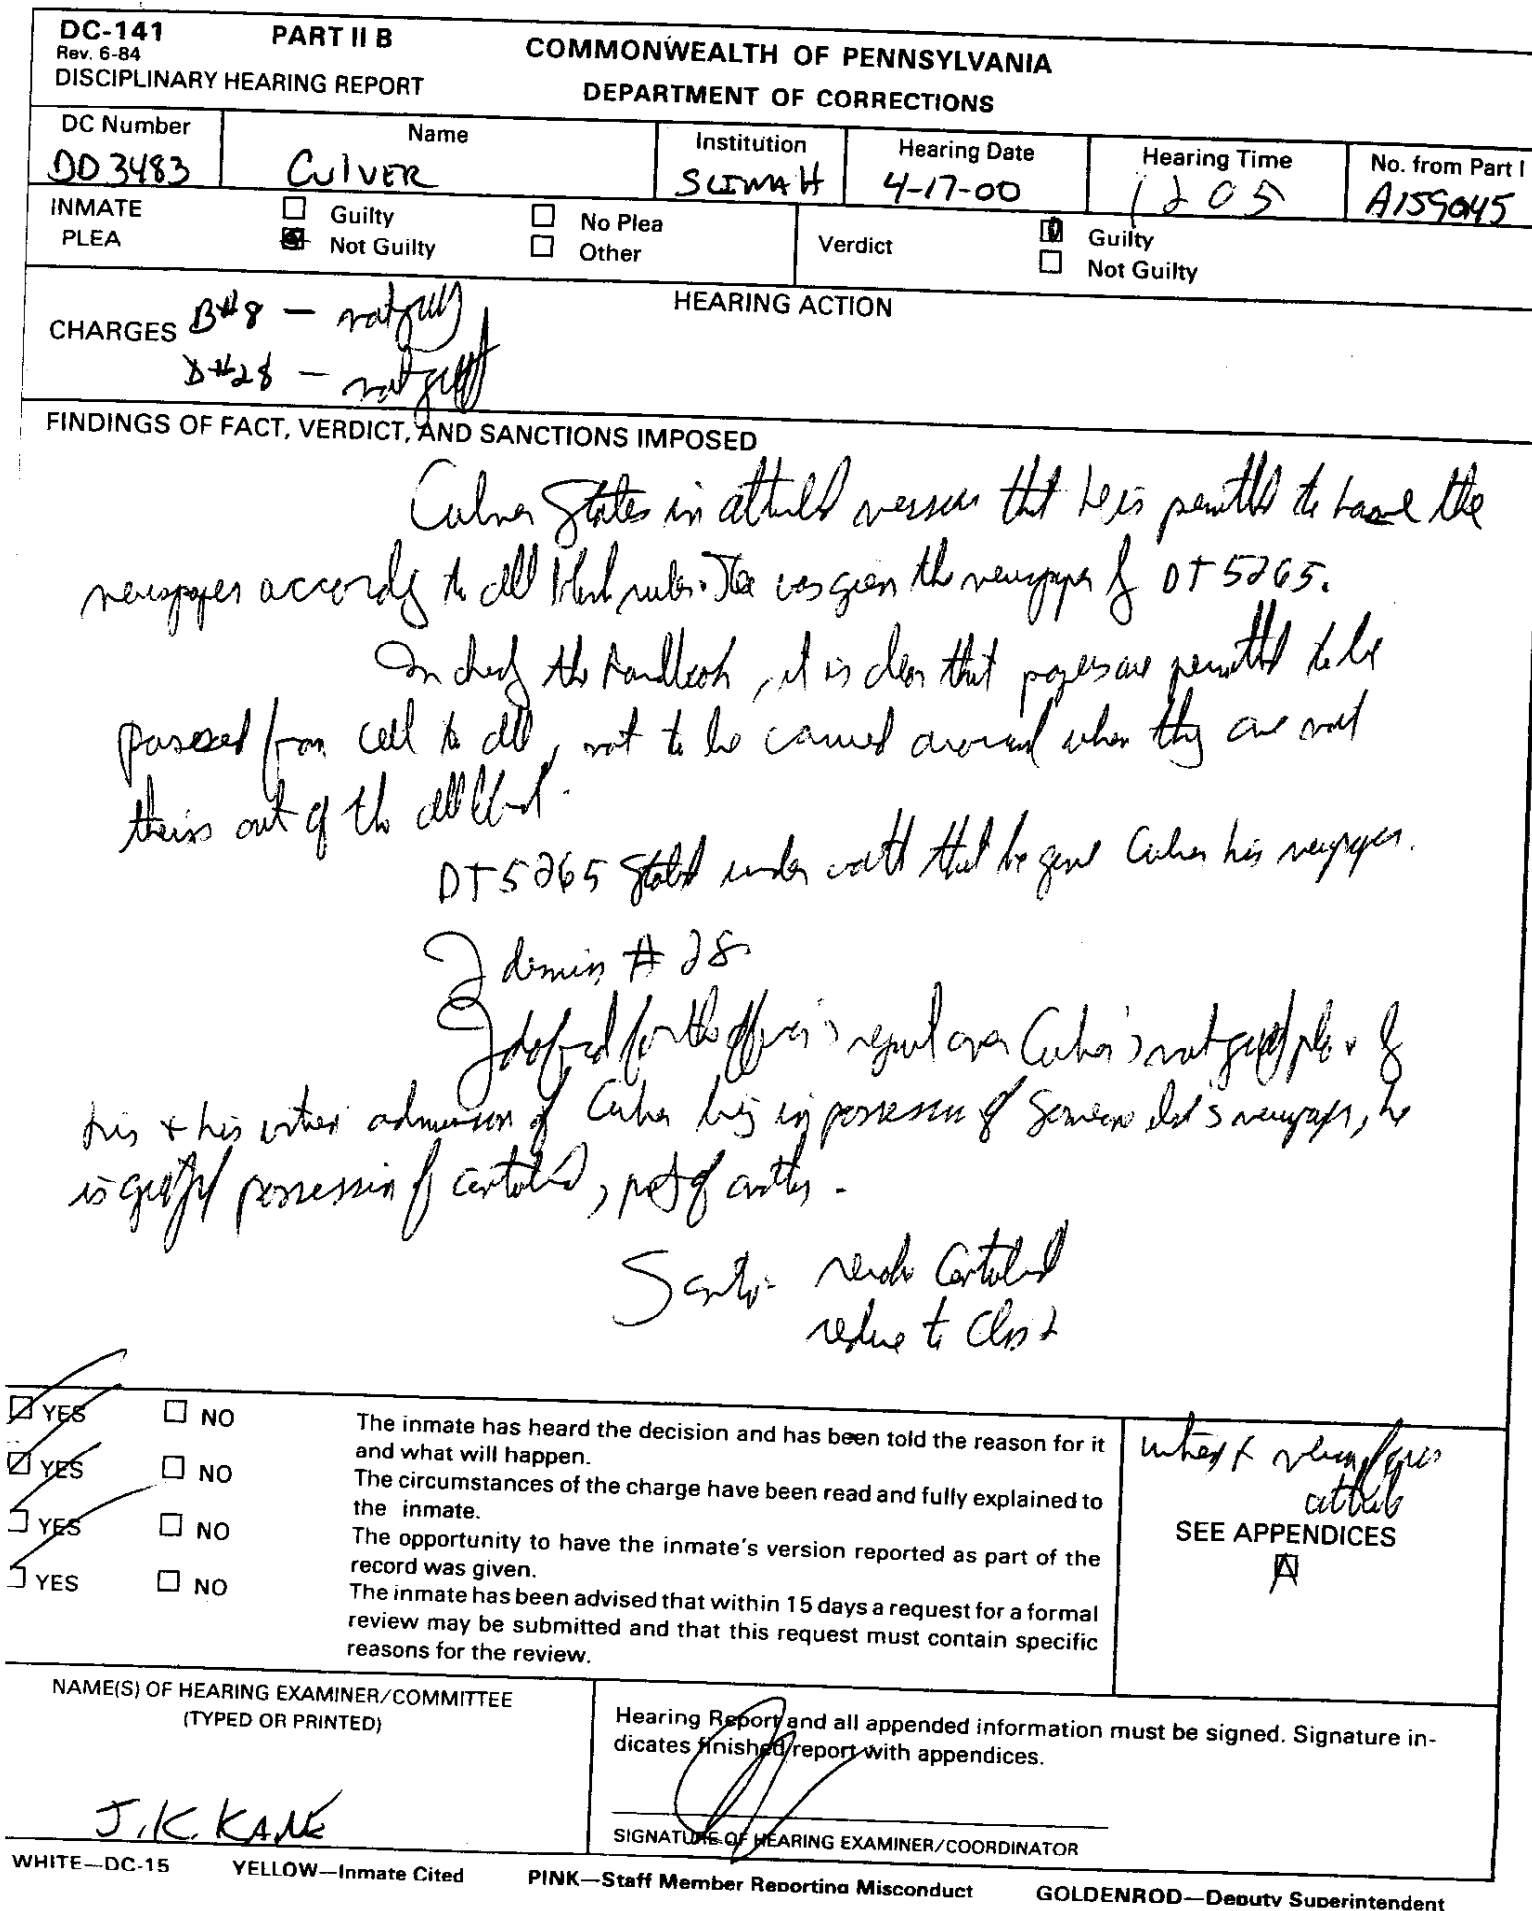 DC-141 PART II B COMMONWEALTH OF PENNSYLVANIA
Rev. 6-84
DISCIPLINARY HEARING REPORT DEPARTMENT OF CORRECTIONS
DC Number Name Institution Hearing Date Hearing Time No. from Part I
DD3483 CulVER 4-17-00 1205
INMATE PLEA
☐ Guilty ☐ No Plea
☒ Not Guilty ☐ Other
Verdict
☒ Guilty
☐ Not Guilty
HEARING ACTION
CHARGES B#8 – not guilty
#28 – not guilty
FINDINGS OF FACT, VERDICT, AND SANCTIONS IMPOSED
Culver States in version that he is permitted to have the
newspaper to rules. the newspaper DT5265.
the handbook, it is clear that papers are permitted to be
passed from cell to cell, not to be carried around when they are not
theirs out of the cell block.
DT5265 Stated under oath that he gave Culver his newspaper.
I dismiss #28
I the officer's report over Culver's not guilty
this & his admission of Culver being in possession of someone else's newspaper, he
is guilty of possession of contraband,
contraband
to Class 2
☑ YES ☐ NO The inmate has heard the decision and has been told the reason for it
and what will happen.
☑ YES ☐ NO The circumstances of the charge have been read and fully explained to
the inmate.
☑ YES ☐ NO The opportunity to have the inmate's version reported as part of the
record was given.
☐ YES ☐ NO The inmate has been advised that within 15 days a request for a formal
review may be submitted and that this request must contain specific
reasons for the review.
SEE APPENDICES
NAME(S) OF HEARING EXAMINER/COMMITTEE
(TYPED OR PRINTED)
J.K. KANE
Hearing Report and all appended information must be signed. Signature in-
dicates finished report with appendices.
SIGNATURE OF HEARING EXAMINER/COORDINATOR
WHITE—DC-15 YELLOW—Inmate Cited PINK—Staff Member Reporting Misconduct GOLDENROD—Deputy Superintendent